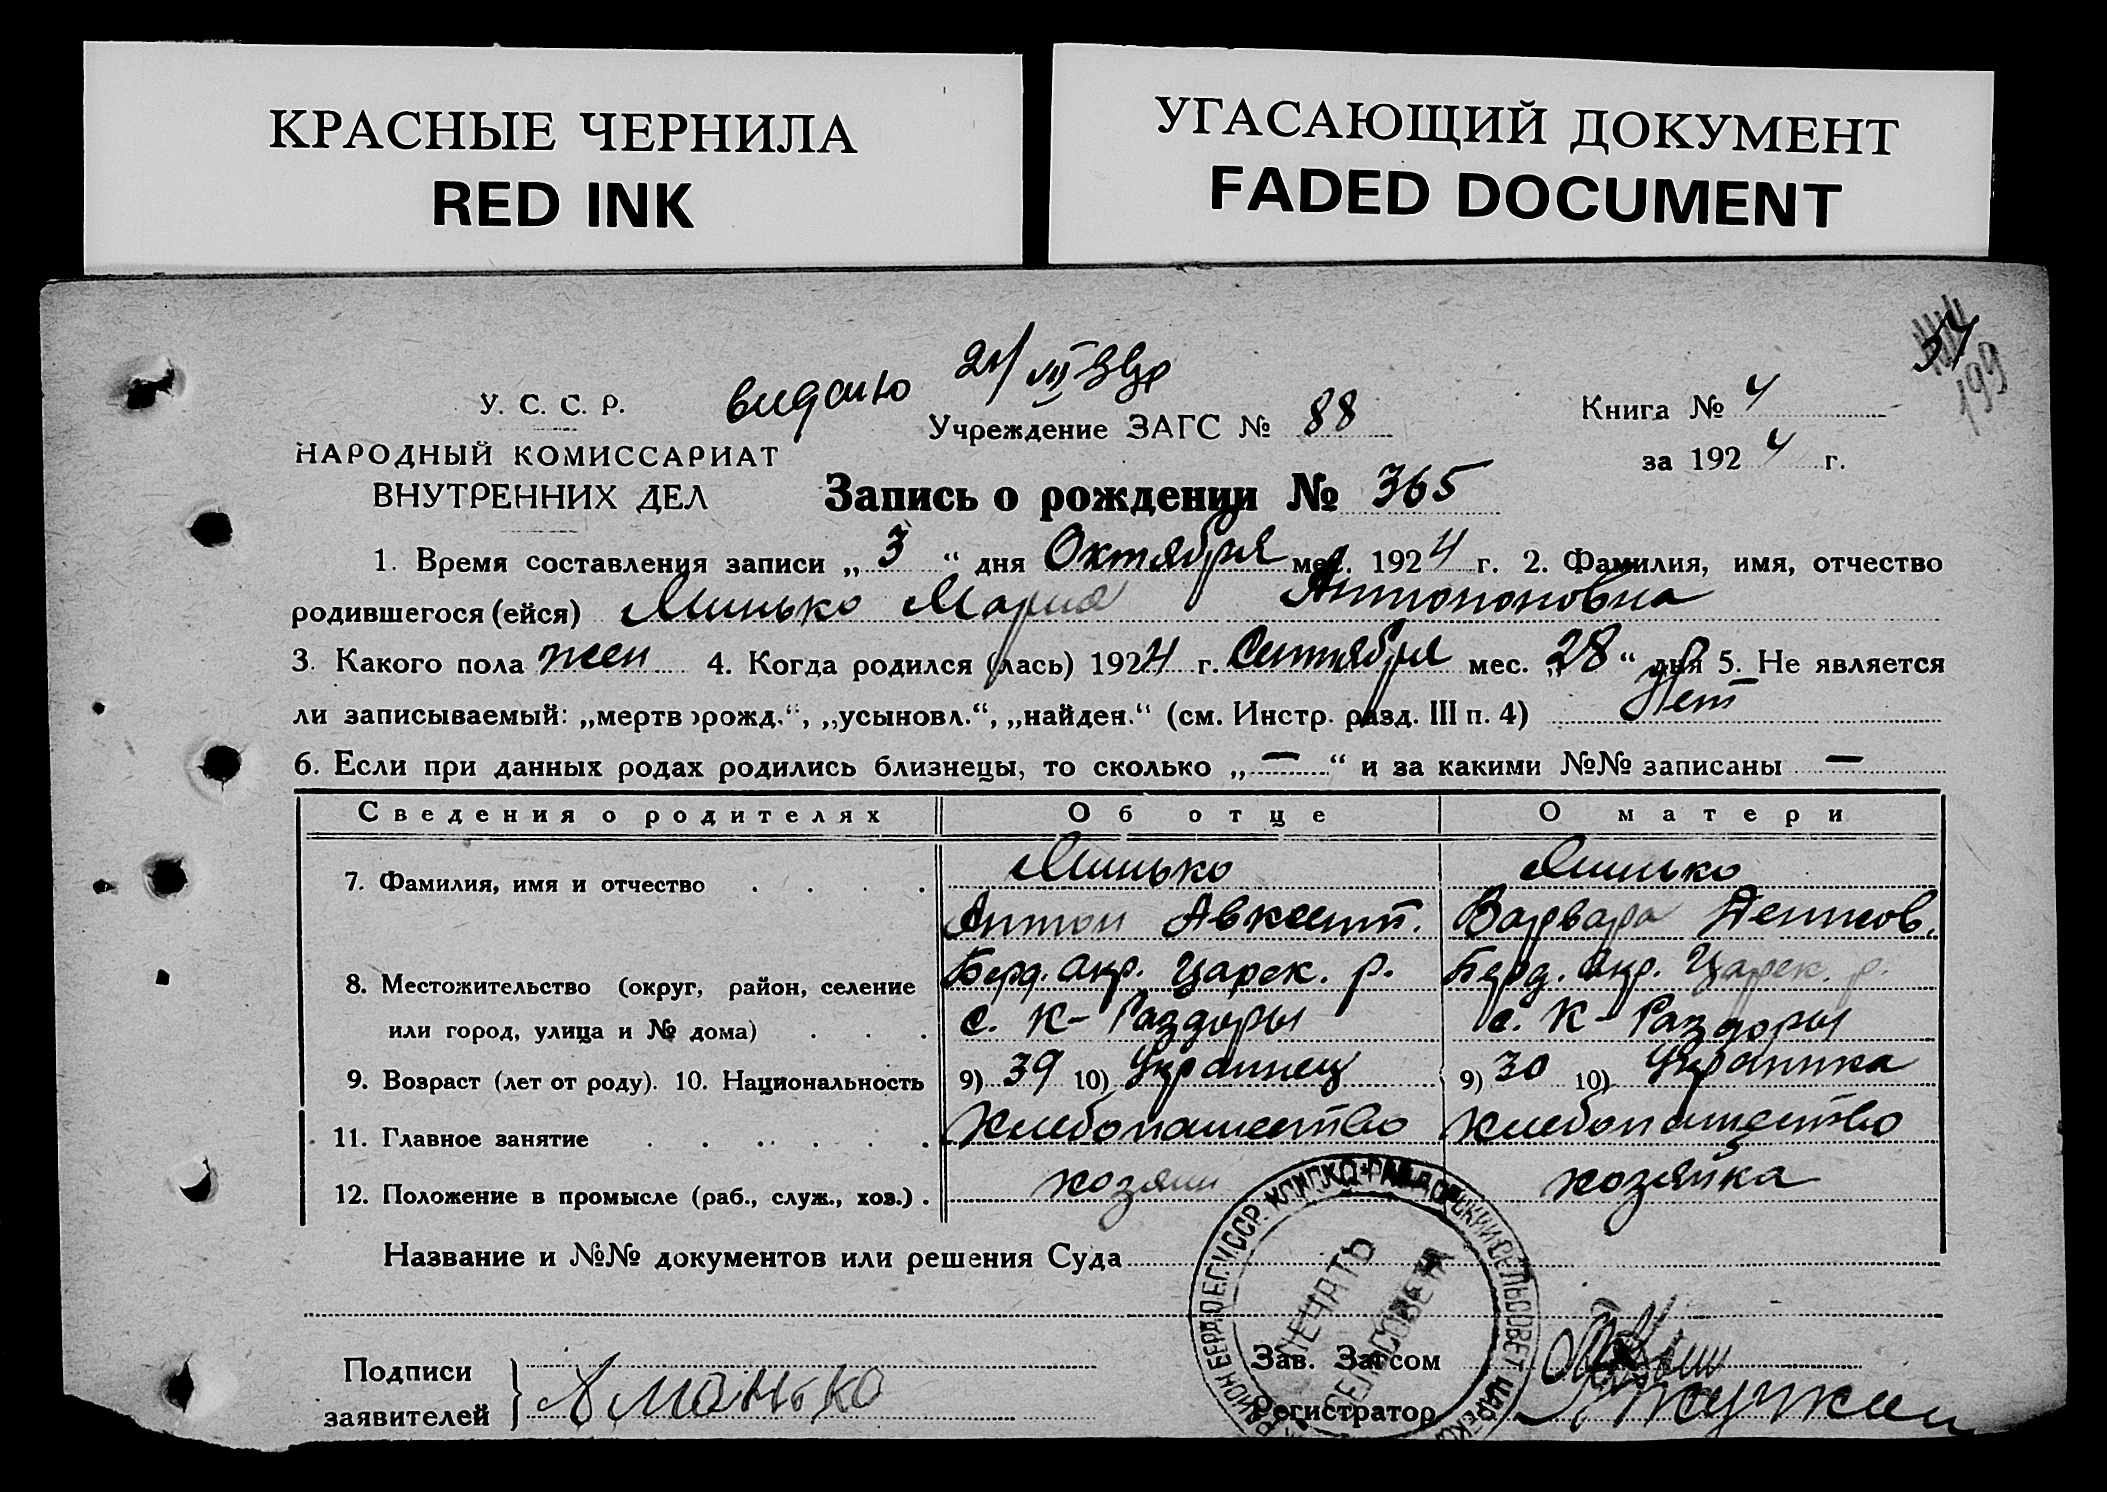 КРАСНЫЕ ЧЕРНИЛА
RED INK
УГАСАЮЩИЙ ДОКУМЕНТ
FADED DOCUMENT
54
199
видано 21/VII
У. С. С. Р.
Учреждение ЗАГС № 88
Книга № 4
НАРОДНЫЙ КОМИССАРИАТ
за 1924 г.
ВНУТРЕННИХ ДЕЛ
Запись о рождении № 365
1. Время составления записи „ 3 “ дня Октября мес. 1924 г. 2. Фамилия, имя, отчество
родившегося (ейся) Минько Мария Антоновна
3. Какого пола жен 4. Когда родился (лась) 1924 г. Сентября мес. „28“ дня 5. Не является
ли записываемый: „мертворожд.“, „усыновл.“, „найден.“ (см. Инстр. разд. III п. 4) Нет
6. Если при данных родах родились близнецы, то сколько „ — “ и за какими №№ записаны —
Сведения о родителях Об отце О матери
7. Фамилия, имя и отчество Минько Минько
Антон Авксент. Варвара
8. Местожительство (округ, район, селение Берд. окр. Царек. р. Берд. окр. Царек. р.
или город, улица и № дома) с. К-Раздоры с. К-Раздоры
9. Возраст (лет от роду). 10. Национальность 9) 39 10) Украинец 9) 30 10) Украинка
11. Главное занятие Хлебопашество Хлебопашество
12. Положение в промысле (раб., служ., хоз.) хозяин хозяйка
Название и №№ документов или решения Суда
КЛИПКО-РАЗДОРСКИЙ СЕЛЬСОВЕТ
ПЕЧАТЬ
СЕЛЬСОВЕТА
Подписи
заявителей
Зав. Загсом
Регистратор